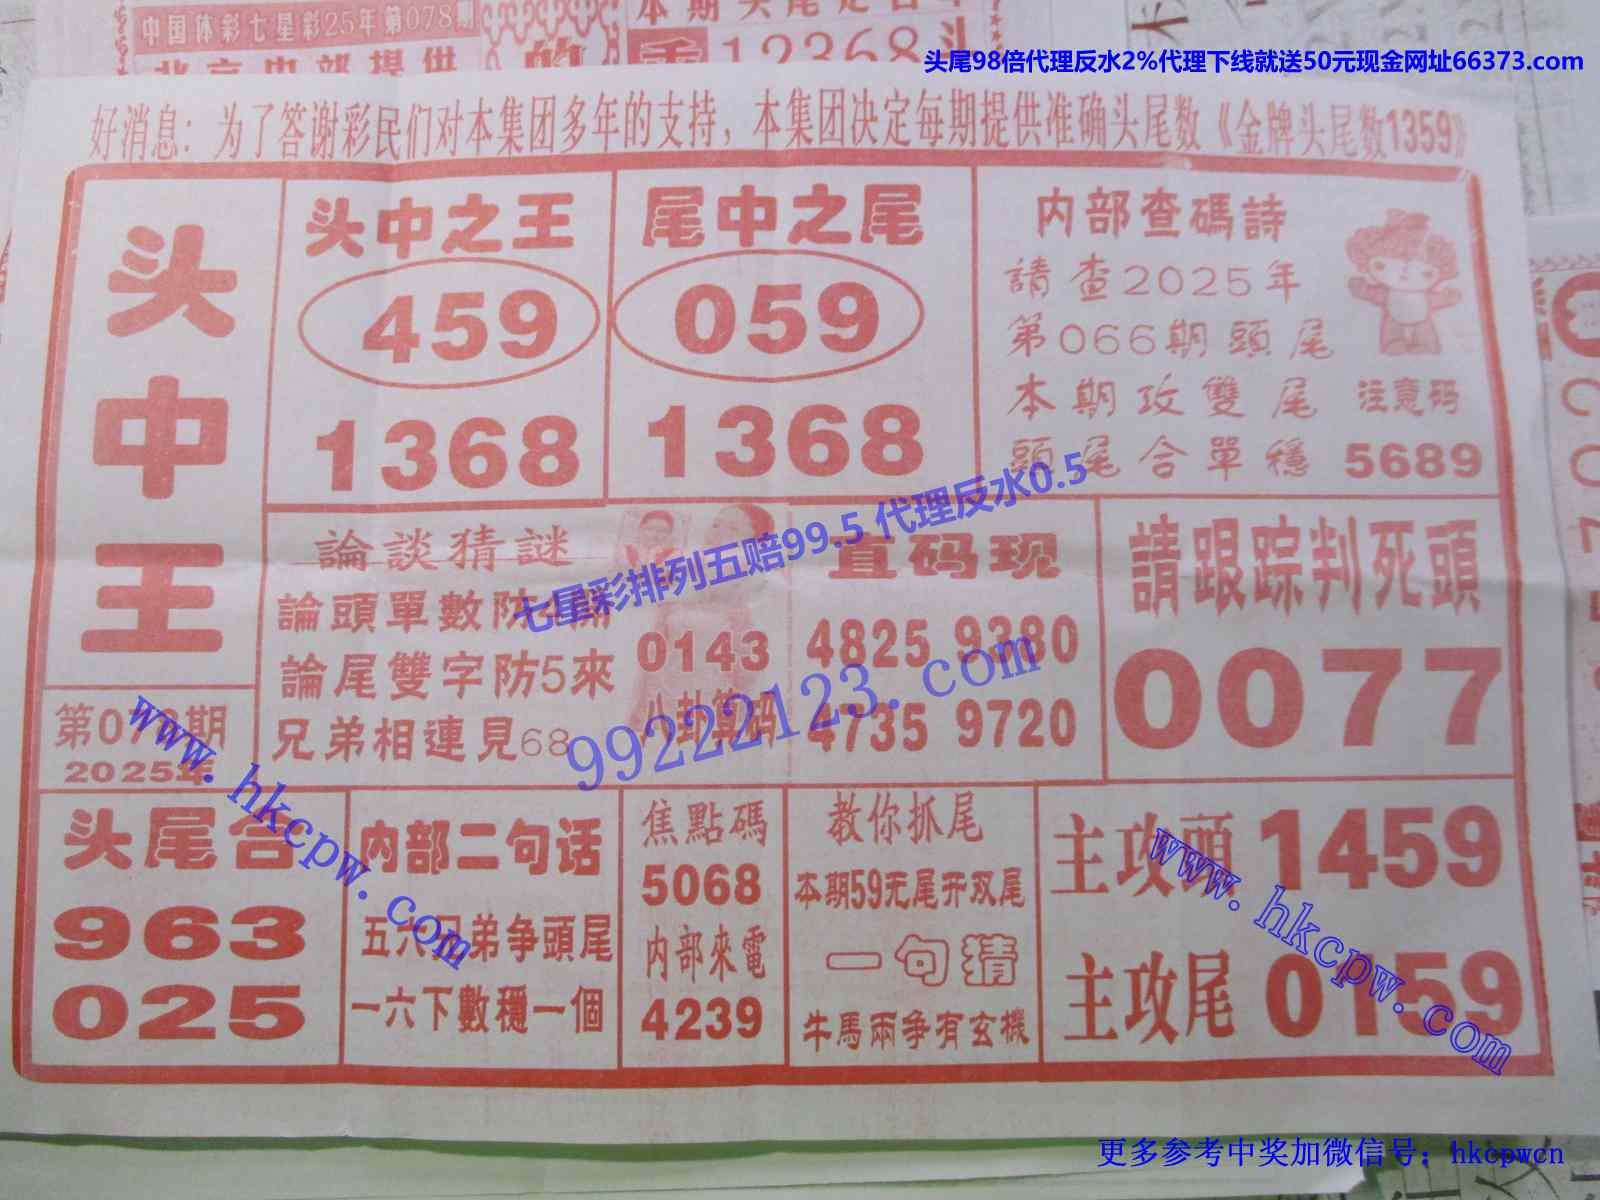 中国体彩七星彩25年第078期
12368头
头尾98倍代理反水2%代理下线就送50元现金网址66373.com
好消息：为了答谢彩民们对本集团多年的支持，本集团决定每期提供准确头尾数《金牌头尾数1359》
头中王
第078期
2025年
头中之王
459
1368
尾中之尾
059
1368
内部查碼詩
請查2025年
第066期頭尾
本期攻雙尾
頭尾合單穩
注意码
5689
論談猜謎
論頭單數防
論尾雙字防5來
兄弟相連見68
0143
八卦算码
直码现
4825 9380
4735 9720
請跟踪判死頭
0077
七星彩排列五赔99.5 代理反水0.5
99222123.com
www.hkcpw.com
头尾合
963
025
内部二句话
五六兄弟争頭尾
一六下數穩一個
焦點碼
5068
内部來電
4239
教你抓尾
本期59无尾开双尾
一句猜
牛馬兩争有玄機
主攻頭 1459
主攻尾 0159
www.hkcpw.com
更多参考中奖加微信号：hkcpwcn